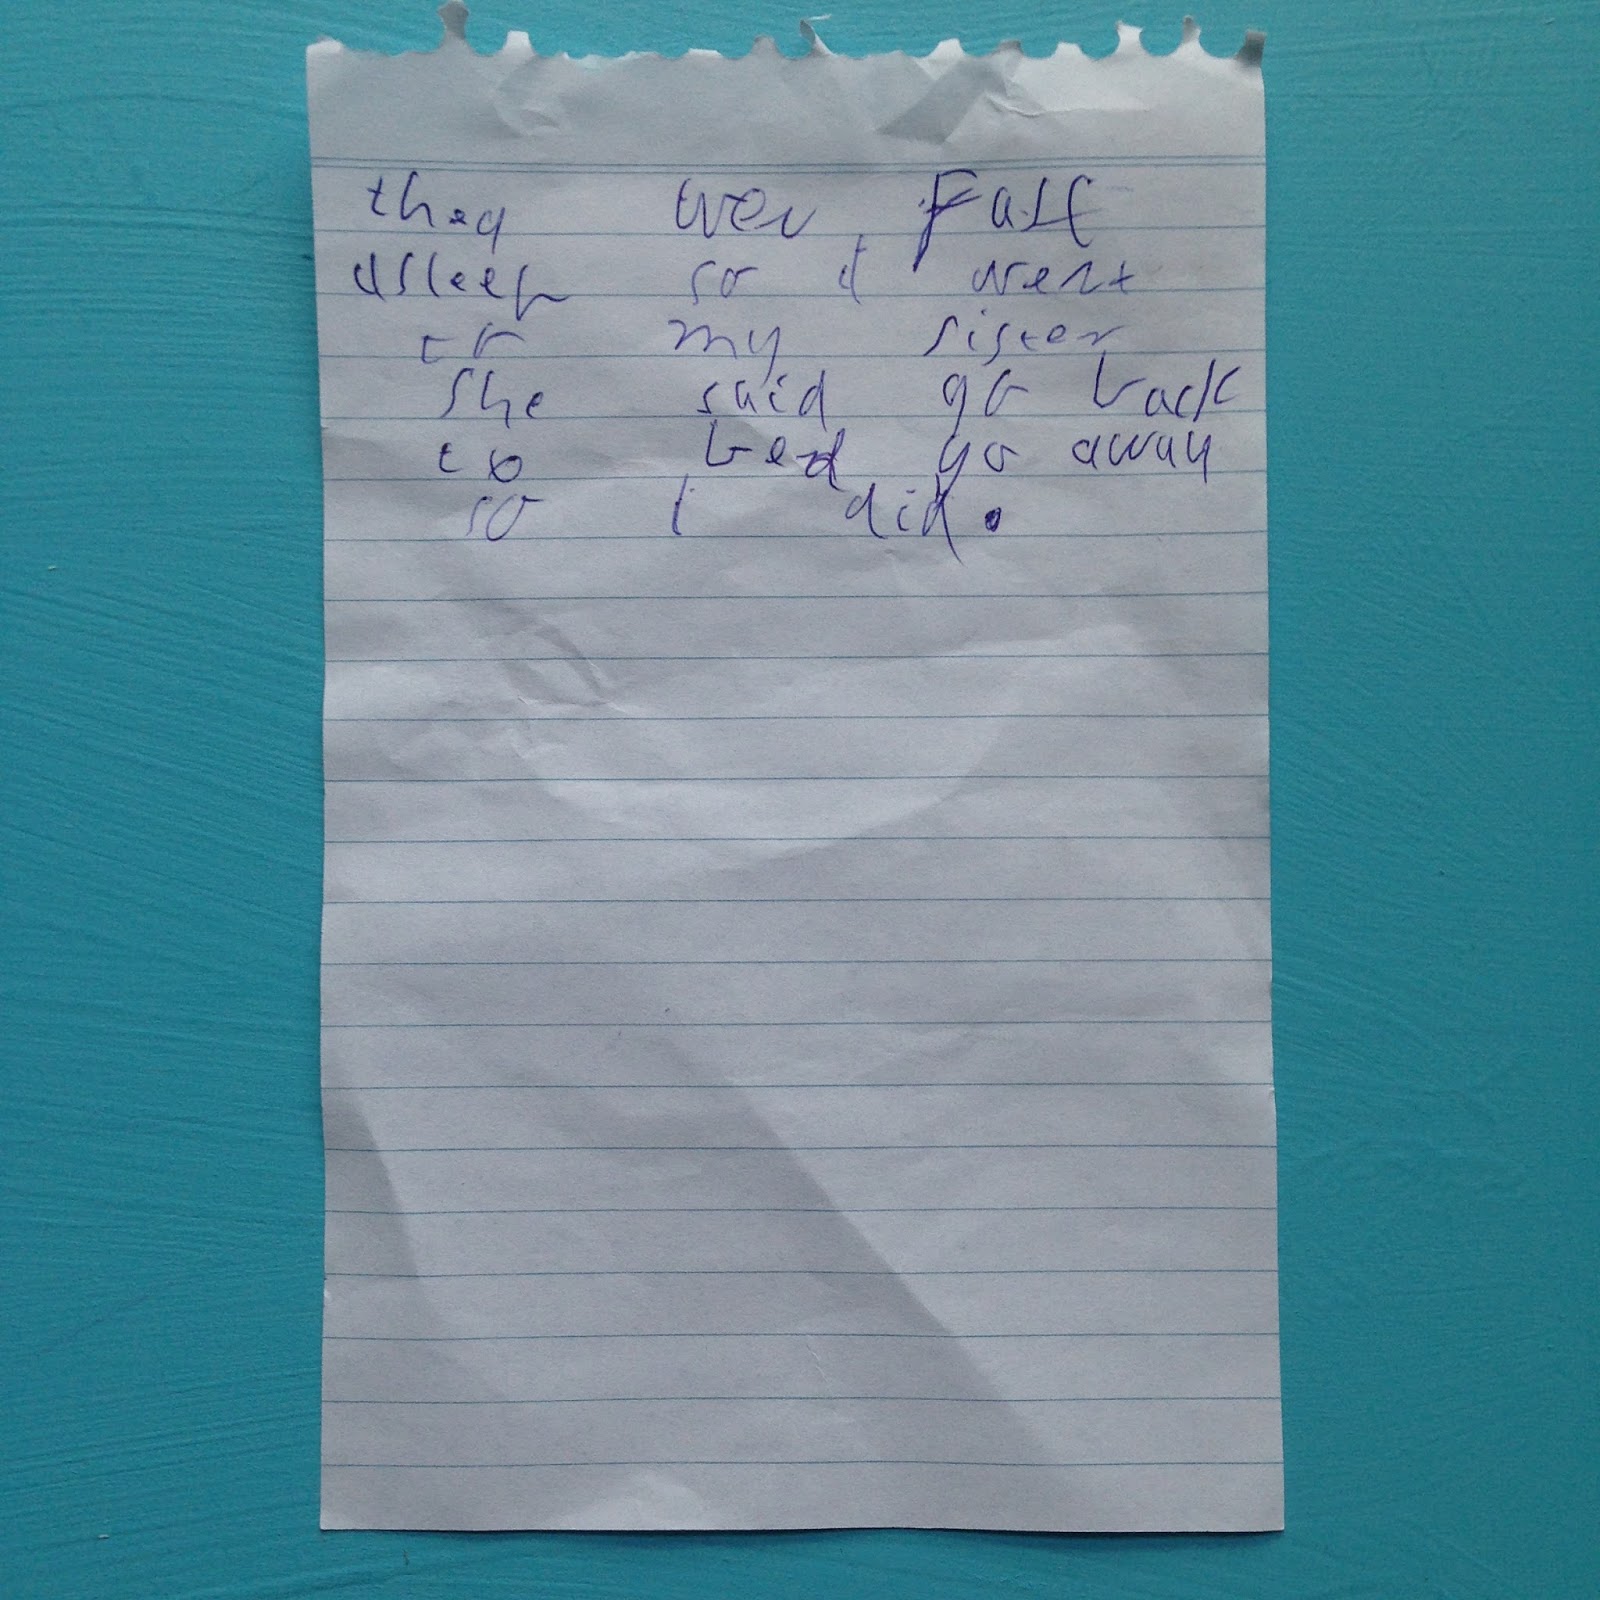 they wer Fast
asleep so I went
to my sister
she said go back
to bed go away
so I did.